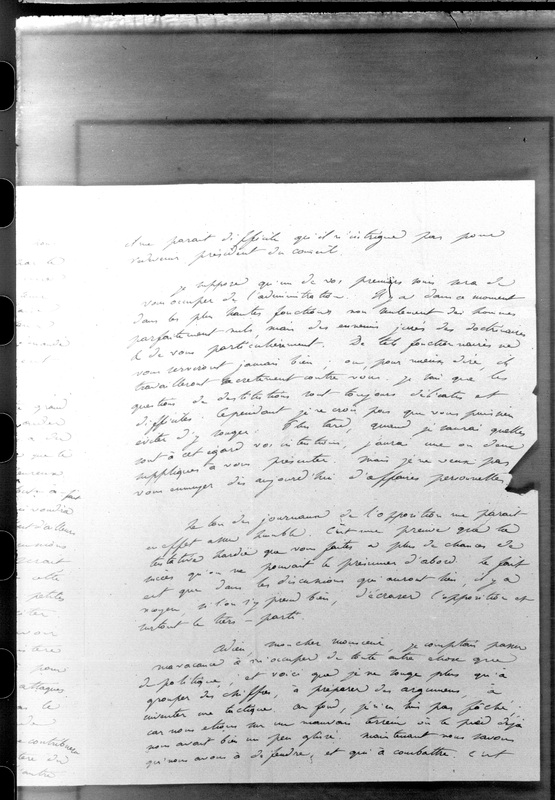 il me parait difficile qu'il n'intrigue pas pour
redevenir président du conseil.
je suppose qu'un de vos premiers soins sera de
vous occuper de l'administration. Il y a dans ce moment
dans les plus hautes fonctions non seulement des hommes
parfaitement nuls mais des ennemis jurés des doctrinaires
& de vous particulièrement. De tels fonctionnaires ne
vous serviront jamais bien; ou, pour mieux dire, ils
travailleront secrètement contre vous. je sais que les
questions de destitutions sont toujours délicates et
difficiles. Cependant je ne crois pas que vous puissiez
éviter d'y songer. Plus tard, quand je saurai quelles
sont à cet égard vos intentions, j'aurai une ou deux
suppliques à vous présenter. mais je ne veux pas
vous ennuyer dès aujourd'hui d'affaires personnelles.
Le ton des journaux de l'opposition me parait
en effet assez humble. C'est une preuve que la
tentative hardie que vous faites a plus de chances de
succès qu'on ne pouvait le présumer d'abord. le fait
est que dans les discussions qui auront lieu, il y a
moyen, si l'on s'y prend bien, d'écraser l'opposition et
surtout le tiers-parti.
Adieu, mon cher monsieur, je comptais passer
mes vacances à m'occuper de toute autre chose que
de politique, et voici que je ne songe plus qu'à
grouper des chiffres, à préparer des argumens, à
inventer une tactique. au fond, je n'en suis pas fâché:
car nous étions sur un mauvais terrein où le pied déjà
nous avait bien un peu glissé. maintenant nous savons
qui nous avons à défendre, et qui à combattre. C'est